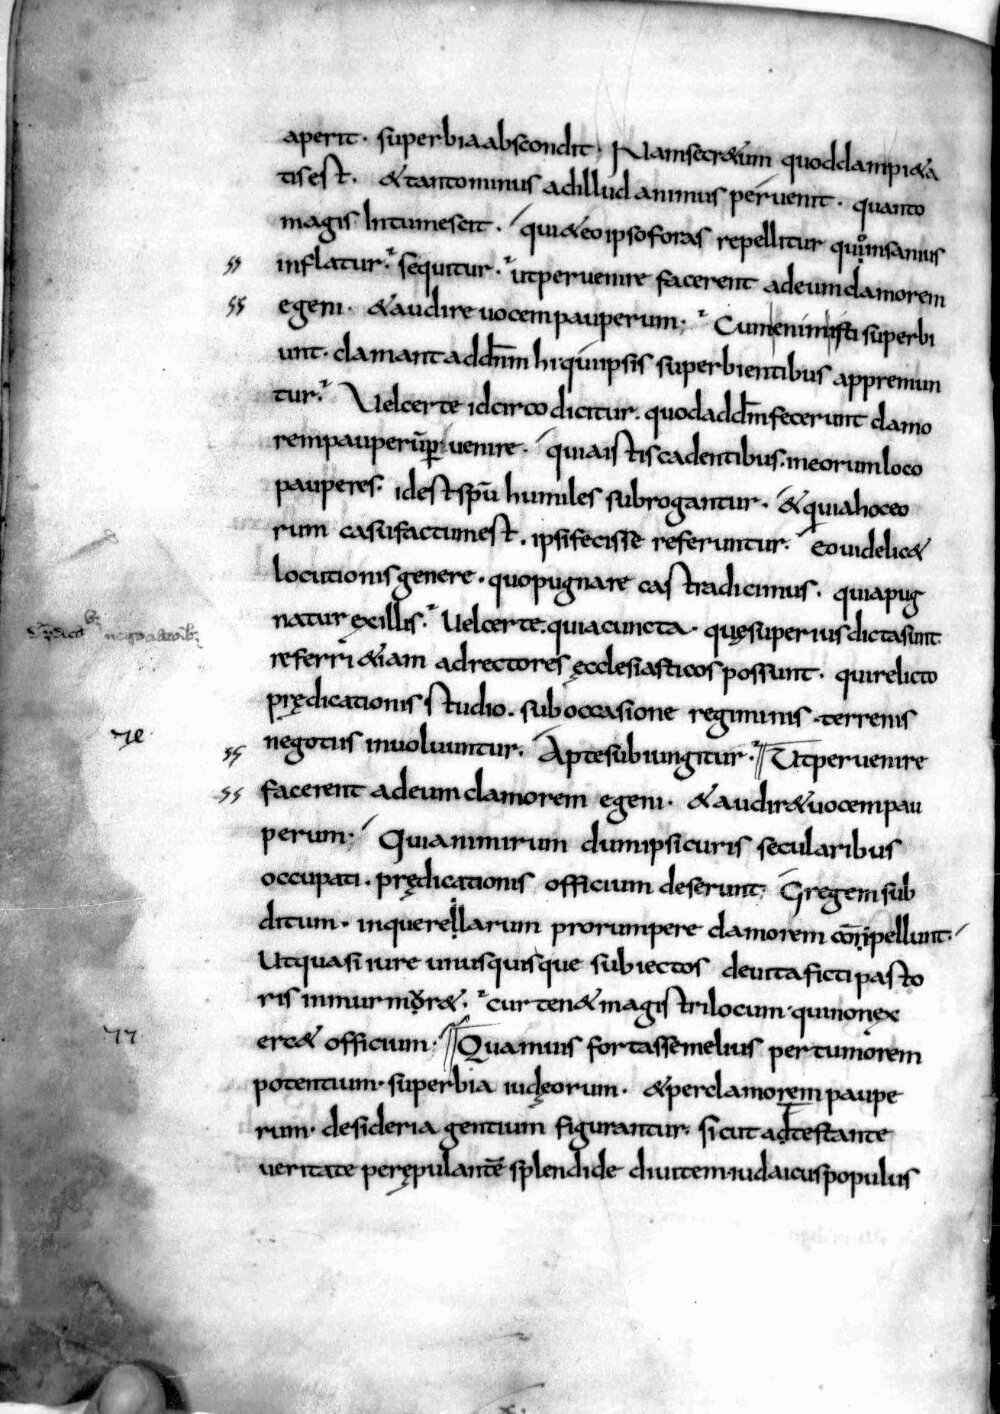 aperit· superbia abscondit; Nam secr&um quoddam pi&a
tis est· & tanto minus ad illud animus peruenit· quanto
magis intumescit· qui & eo ipso foras repellitur quo insanius
inflatur· sequitur· ut peruenire facerent ad eum clamorem
egeni· & audire uocem pauperum; Cum enim isti superbi
unt· clamant ad dn̄m hi qui ipsis superbientibus appremun
tur· Vel certe idcirco dicitur· quod ad dn̄m fecerunt clamo
rem pauperū ꝑuenire· quia istis cadentibus· in eorum loco
pauperes· id est spū humiles subrogantur· & quia hoc eo
rum casu factum est· ipsi fecisse referuntur· eo uidelic&
locutionis genere· quo pugnare castra dicimus· quia pug
natur ex illis· Vel certe· quia cuncta· quę superius dicta sunt
referri &iam ad rectores ęcclesiasticos possunt· qui relicto
prędicationis studio· sub occasione regiminis· terrenis
negotiis inuoluuntur· Apte subiungitur· Ut peruenire
facerent ad eum clamorem egeni· & audir& uocem pau
perum· Quia nimirum dum ipsi curis secularibus
occupati· prędicationis officium deserunt; Gregem sub
ditum· in querellarum prorumpere clamorem conpellunt·
Ut quasi iure unusquisque subiectos de uita ficti pasto
ris inmurmor&· cur ten& magistri locum· qui non ex
erc& officium; Quamuis fortasse melius per tumorem
potentium· superbia iudęorum· & per clamorem paupe
rum· desideria gentium figurantur· sicut adtestante
ueritate per ępulantē splendide diuitem· iudaicus populus